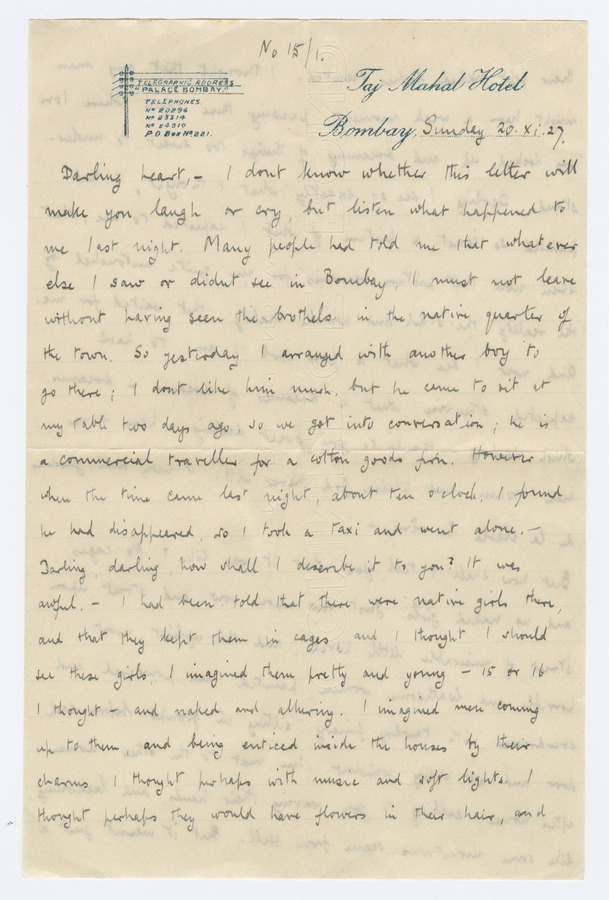 No 15/1.
TELEGRAPHIC ADDRESS
"PALACE BOMBAY."
TELEPHONES
Nº 20296
Nº 23314
P O Box Nº 221.
Taj Mahal Hotel
Bombay, Sunday 20. XI. 27.
Darling heart, – I dont know whether this letter will
make you laugh or cry, but listen what happened to
me last night. Many people had told me that whatever
else I saw or didnt see in Bombay I must not leave
without having seen the brothels in the native quarter of
the town. So yesterday I arranged with another boy to
go there; I dont like him much, but he came to sit at
my table two days ago, so we got into conversation; he is
a commercial traveller for a cotton goods firm. However
when the time came last night, about ten o'clock, I found
he had disappeared, so I took a taxi and went alone. –
Darling, darling, how shall I describe it to you? It was
awful. – I had been told that there were native girls there,
and that they kept them in cages and I thought I should
see these girls. I imagined them pretty and young – 15 or 16
I thought – and naked and alluring. I imagined men coming
up to them, and being enticed inside the houses by their
charms I thought perhaps with music and soft lights. I
thought perhaps they would have flowers in their hair, and